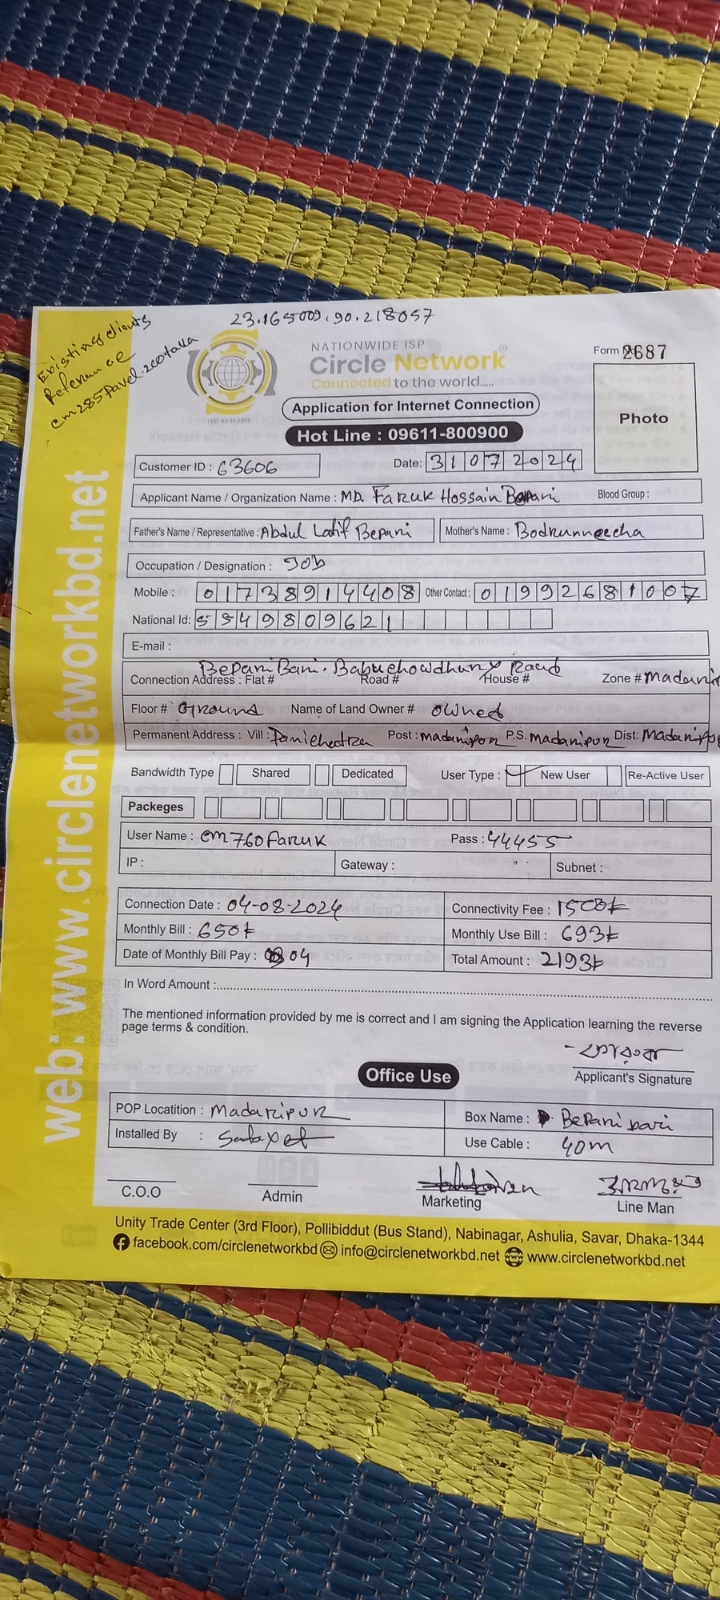 23.165009.90.218057
Existing clients
Reference
cm285Pavel-200taka
NATIONWIDE ISP
Circle Network
Connected to the world.....
ISO 9001:2015
Form 2687
Application for Internet Connection
Photo
Hot Line : 09611-800900
Customer ID : 63606 Date: 31072024
Applicant Name / Organization Name : MD. Faruk Hossain Bepari Blood Group :
Father's Name / Representative : Abdul Latif Bepari Mother's Name : Bodrunnecha
Occupation / Designation : Job
Mobile : 01738914408 Other Contact : 01992681007
National Id: 5549809621
E-mail :
Bepari Bari. Babuchowdhury Road
Connection Address : Flat # Road # House # Zone # Madarip
Floor # Ground Name of Land Owner # owned
Permanent Address : Vill : Panichatra Post : madaripor P.S. madaripur Dist: Madaripu
Bandwidth Type Shared Dedicated User Type : New User Re-Active User
Packeges
User Name : cm760faruk Pass : 44455
IP : Gateway : Subnet :
Connection Date : 04-08-2024 Connectivity Fee : 1500৳
Monthly Bill : 650৳ Monthly Use Bill : 693৳
Date of Monthly Bill Pay : 04 Total Amount : 2193৳
In Word Amount :
The mentioned information provided by me is correct and I am signing the Application learning the reverse
page terms & condition.
ফারুক
Applicant's Signature
Office Use
POP Locatition : Madaripur Box Name : Bepari bari
Installed By : Use Cable : 40m
C.O.O Admin Marketing Line Man
Unity Trade Center (3rd Floor), Pollibiddut (Bus Stand), Nabinagar, Ashulia, Savar, Dhaka-1344
facebook.com/circlenetworkbd info@circlenetworkbd.net www.circlenetworkbd.net
web: www.circlenetworkbd.net